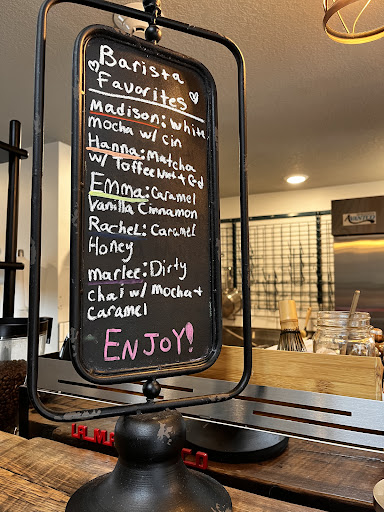 Barista
Favorites
Madison: White
mocha w/ cin
Hanna: Matcha
w/ Toffee Nut +
Emma: Caramel
Vanilla Cinnamon
Rachel: Caramel
Honey
marlee: Dirty
chai w/ mocha +
caramel
ENJOY!